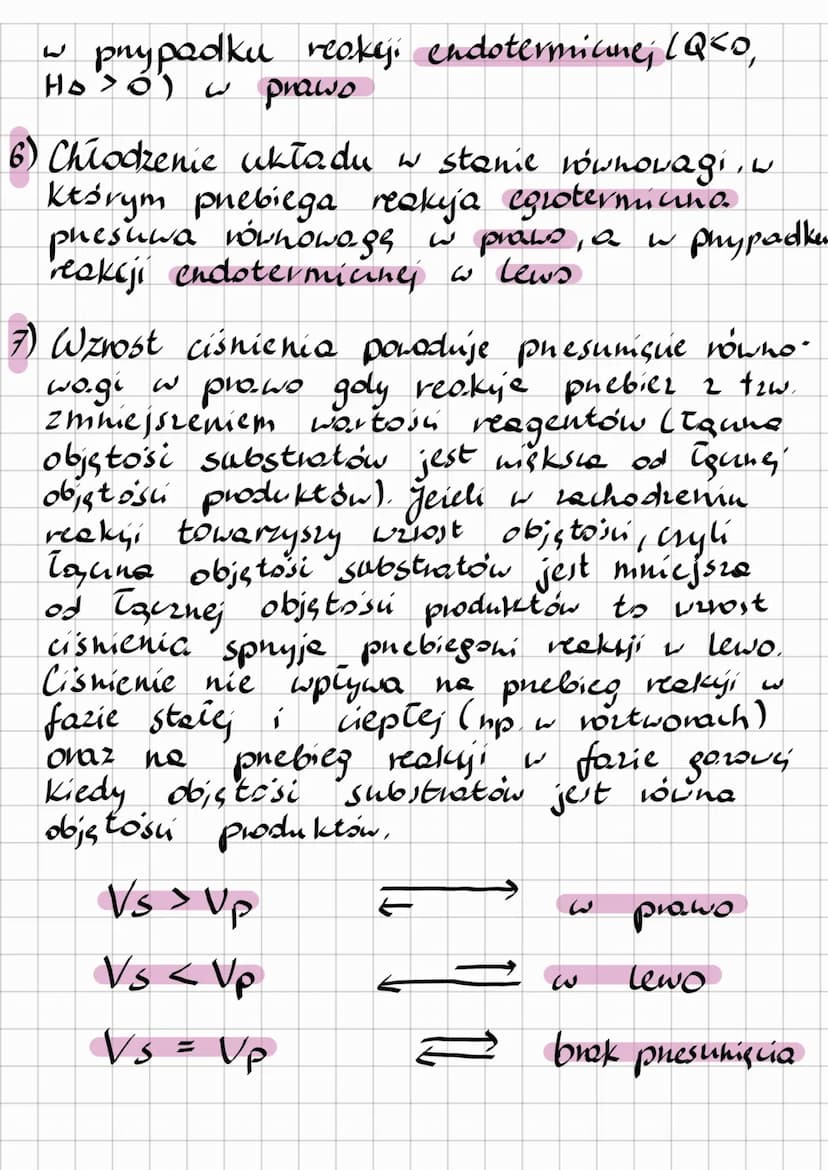 w przypadku reakcji endotermicznej (Q<0,
HΔ > 0) w prawo
6) Chłodzenie układu w stanie równowagi, w
którym przebiega reakcja egzotermiczna
przesuwa równowagę w prawo, a w przypadku
reakcji endotermicznej w lewo
7) Wzrost ciśnienia powoduje przesunięcie równo-
wagi w prawo gdy reakcje przebiez z tzw.
zmniejszeniem wartości reagentów (łączna
objętość substratów jest większa od łącznej
objętości produktów). Jeżeli w zachodzeniu
reakcji towarzyszy wzrost objętości, czyli
łączna objętość substratów jest mniejsza
od łącznej objętości produktów to wzrost
ciśnienia sprzyja przebiegowi reakcji w lewo.
Ciśnienie nie wpływa na przebieg reakcji w
fazie stałej i ciepłej (np. w roztworach)
oraz na przebieg reakcji w fazie gazowej
kiedy objętość substratów jest równa
objętości produktów.
Vs > Vp ⇄ w prawo
Vs < Vp ⇄ w lewo
Vs = Vp ⇄ brak przesunięcia